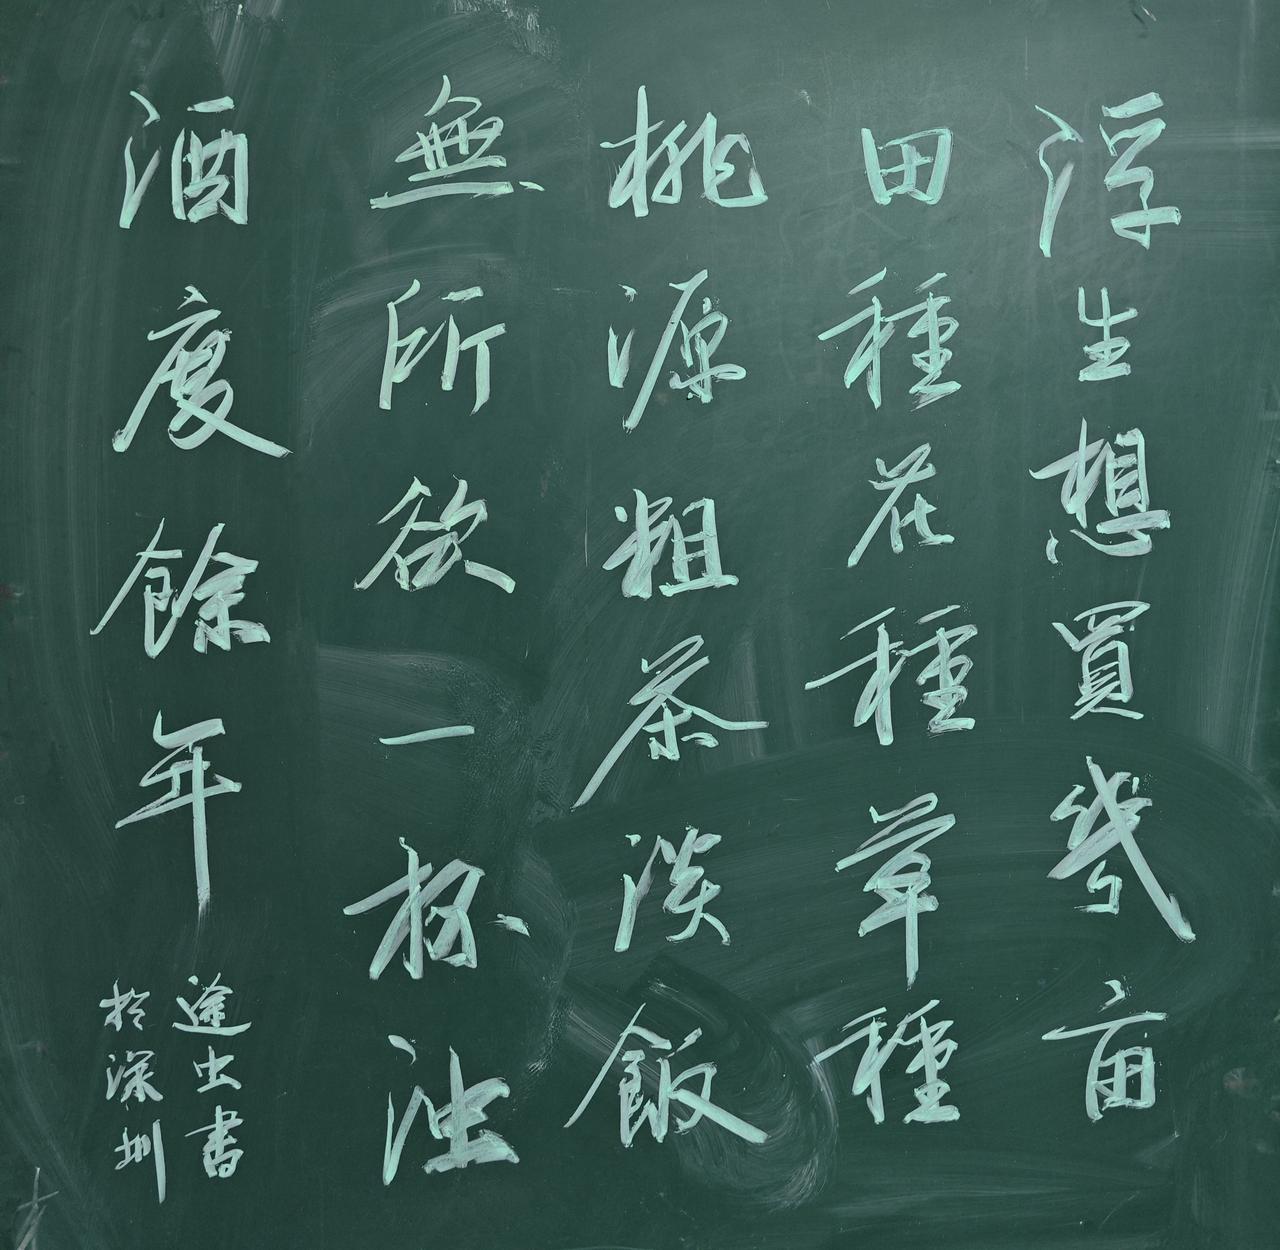 浮生想買幾亩
田種花種草種
桃源粗茶淡飯
無所欲一杯浊
酒度餘年
途虫書
於深圳